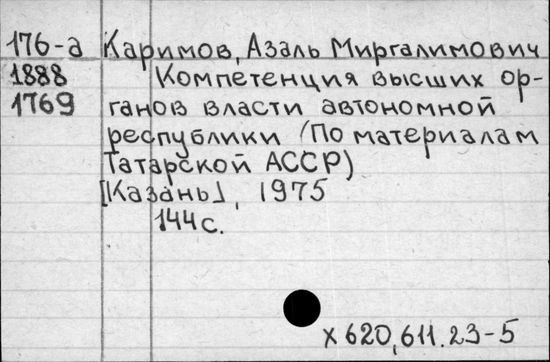 176-а Каримов, Азаль Миргалимович
1888 Компетенция высших ор-
1769 ганов власти автономной
республики (По материалам
Татарской АССР)
[Казань], 1975
144 с.
х 620,611.23-5